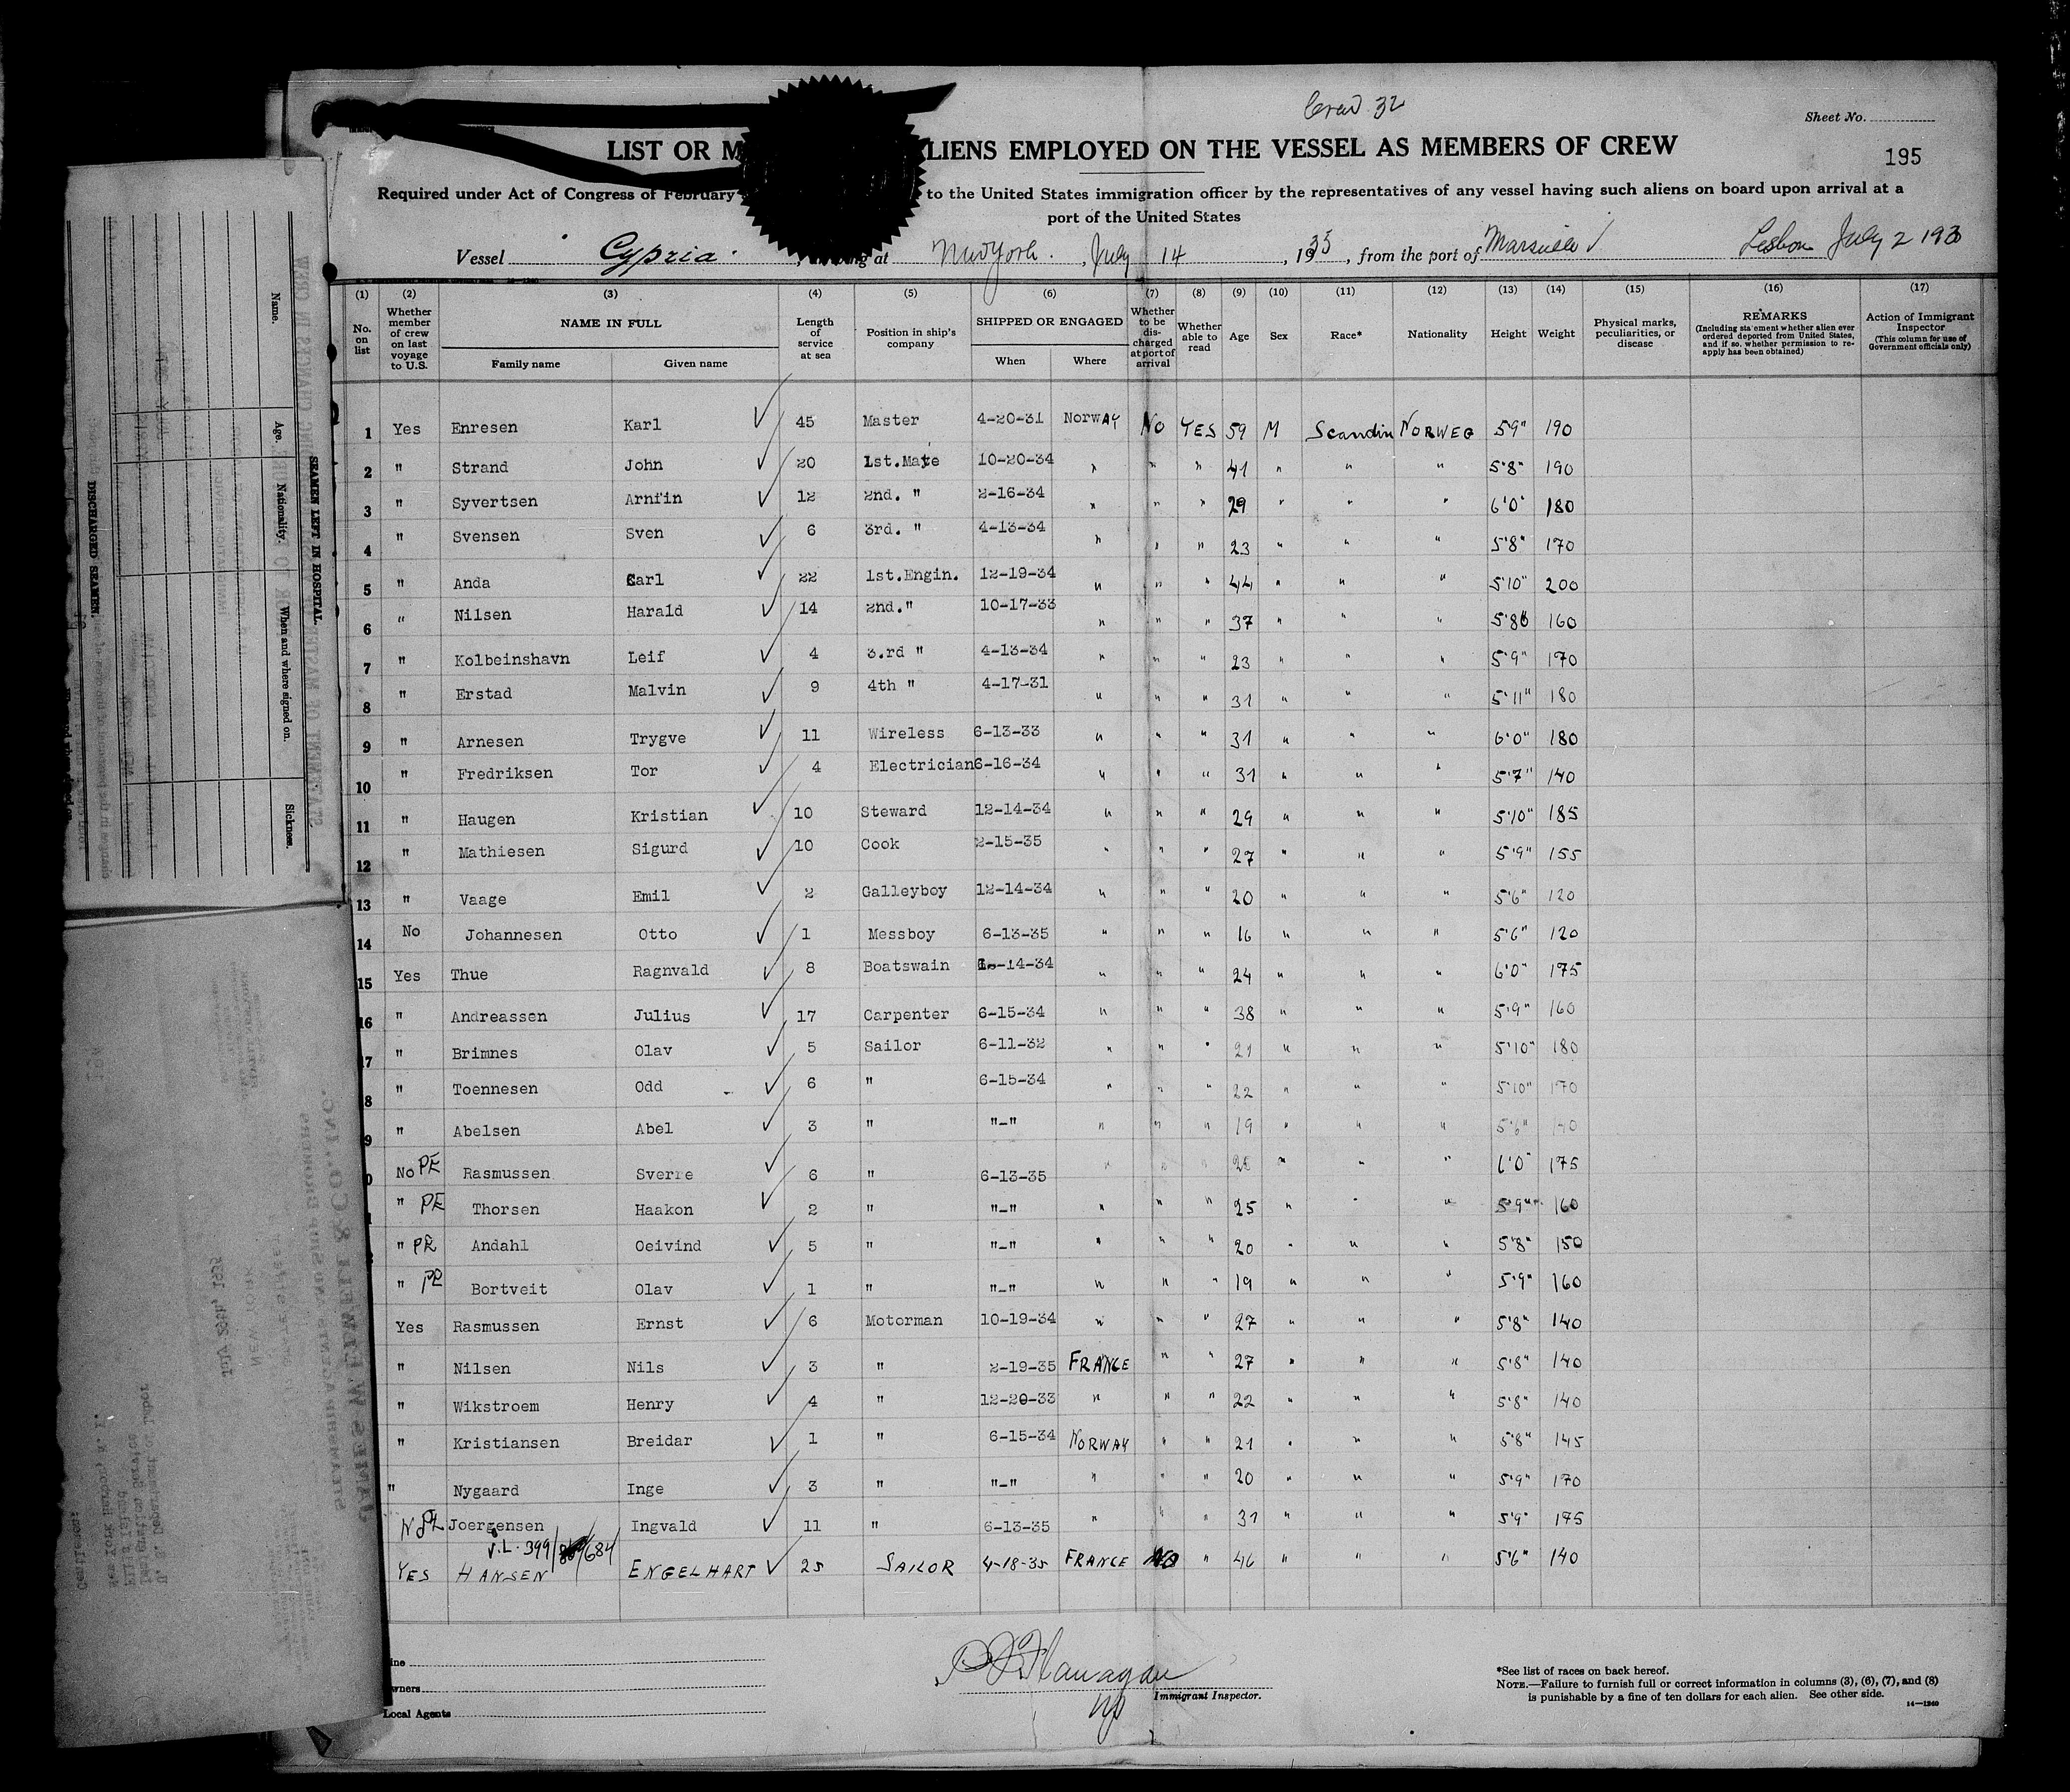 Crew 32
Sheet No.
LIST OR M LIENS EMPLOYED ON THE VESSEL AS MEMBERS OF CREW
195
Required under Act of Congress of February to the United States immigration officer by the representatives of any vessel having such aliens on board upon arrival at a
port of the United States
Vessel Cypria, at New York, July 14, 1935, from the port of Lisbon July 2 193
(1) (2) (3) (4) (5) (6) (7) (8) (9) (10) (11) (12) (13) (14) (15) (16) (17)
No. on list
Whether member of crew on last voyage to U.S.
NAME IN FULL
Family name
Given name
Length of service at sea
Position in ship's company
SHIPPED OR ENGAGED
When
Where
Whether to be discharged at port of arrival
Whether able to read
Age
Sex
Race*
Nationality
Height
Weight
Physical marks, peculiarities, or disease
REMARKS
(Including statement whether alien ever ordered deported from United States, and if so, whether permission to reapply has been obtained)
Action of Immigrant Inspector
(This column for use of Government officials only)
1 Yes Enresen Karl 45 Master 4-20-31 Norway No YES 59 M Scandin NORWEG 5'9" 190
2 " Strand John 20 1st.Mate 10-20-34 " " " 41 " " " 5'8" 190
3 " Syvertsen Arnfin 12 2nd. " 2-16-34 " " " 29 " " " 6'0" 180
4 " Svensen Sven 6 3rd. " 4-13-34 " " " 23 " " " 5'8" 170
5 " Anda Carl 22 1st.Engin. 12-19-34 " " " 44 " " " 5'10" 200
6 " Nilsen Harald 14 2nd." 10-17-33 " " " 37 " " " 5'8 160
7 " Kolbeinshavn Leif 4 3.rd " 4-13-34 " " " 23 " " " 5'9" 170
8 " Erstad Malvin 9 4th " 4-17-31 " " " 31 " " " 5'11" 180
9 " Arnesen Trygve 11 Wireless 6-13-33 " " " 31 " " " 6'0" 180
10 " Fredriksen Tor 4 Electrician 6-16-34 " " " 31 " " " 5'7" 140
11 " Haugen Kristian 10 Steward 12-14-34 " " " 29 " " " 5'10" 185
12 " Mathiesen Sigurd 10 Cook 2-15-35 " " " 27 " " " 5'9" 155
13 " Vaage Emil 2 Galleyboy 12-14-34 " " " 20 " " " 5'6" 120
14 No Johannesen Otto 1 Messboy 6-13-35 " " " 16 " " " 5'6" 120
15 Yes Thue Ragnvald 8 Boatswain -14-34 " " " 24 " " " 6'0" 175
16 " Andreassen Julius 17 Carpenter 6-15-34 " " " 38 " " " 5'9" 160
7 " Brimnes Olav 5 Sailor 6-11-32 " " " 21 " " " 5'10" 180
8 " Toennesen Odd 6 " 6-15-34 " " " 22 " " " 5'10" 170
9 " Abelsen Abel 3 " "-" " " " 19 " " " 5'6" 140
0 No PE Rasmussen Sverre 6 " 6-13-35 " " " " " " 6'0" 175
1 " PE Thorsen Haakon 2 " "-" " " " 25 " " " 5'9" 160
" PE Andahl Oeivind 5 " "-" " " " 20 " " " 5'8" 150
" PE Bortveit Olav 1 " "-" " " " 19 " " " 5'9" 160
Yes Rasmussen Ernst 6 Motorman 10-19-34 " " " 27 " " " 5'8" 140
" Nilsen Nils 3 " 2-19-35 FRANCE " " 27 " " " 5'8" 140
" Wikstroem Henry 4 " 12-20-33 " " " 22 " " " 5'8" 140
" Kristiansen Breidar 1 " 6-15-34 NORWAY " " 21 " " " 5'8" 145
" Nygaard Inge 3 " "-" " " " 20 " " " 5'9" 170
No PE Joergensen Ingvald 11 " 6-13-35 " " " 31 " " " 5'9" 175
YES HANSEN ENGELHART 25 SAILOR 4-18-35 FRANCE NO " 46 " " " 5'6" 140
Line
Owners
Local Agents
Immigrant Inspector.
*See list of races on back hereof.
NOTE.—Failure to furnish full or correct information in columns (3), (6), (7), and (8)
is punishable by a fine of ten dollars for each alien. See other side.
14—1240
SEAMEN LEFT IN HOSPITAL
Name.
Age.
Nationality.
When and where signed on.
Sickness.
DISCHARGED SEAMEN.